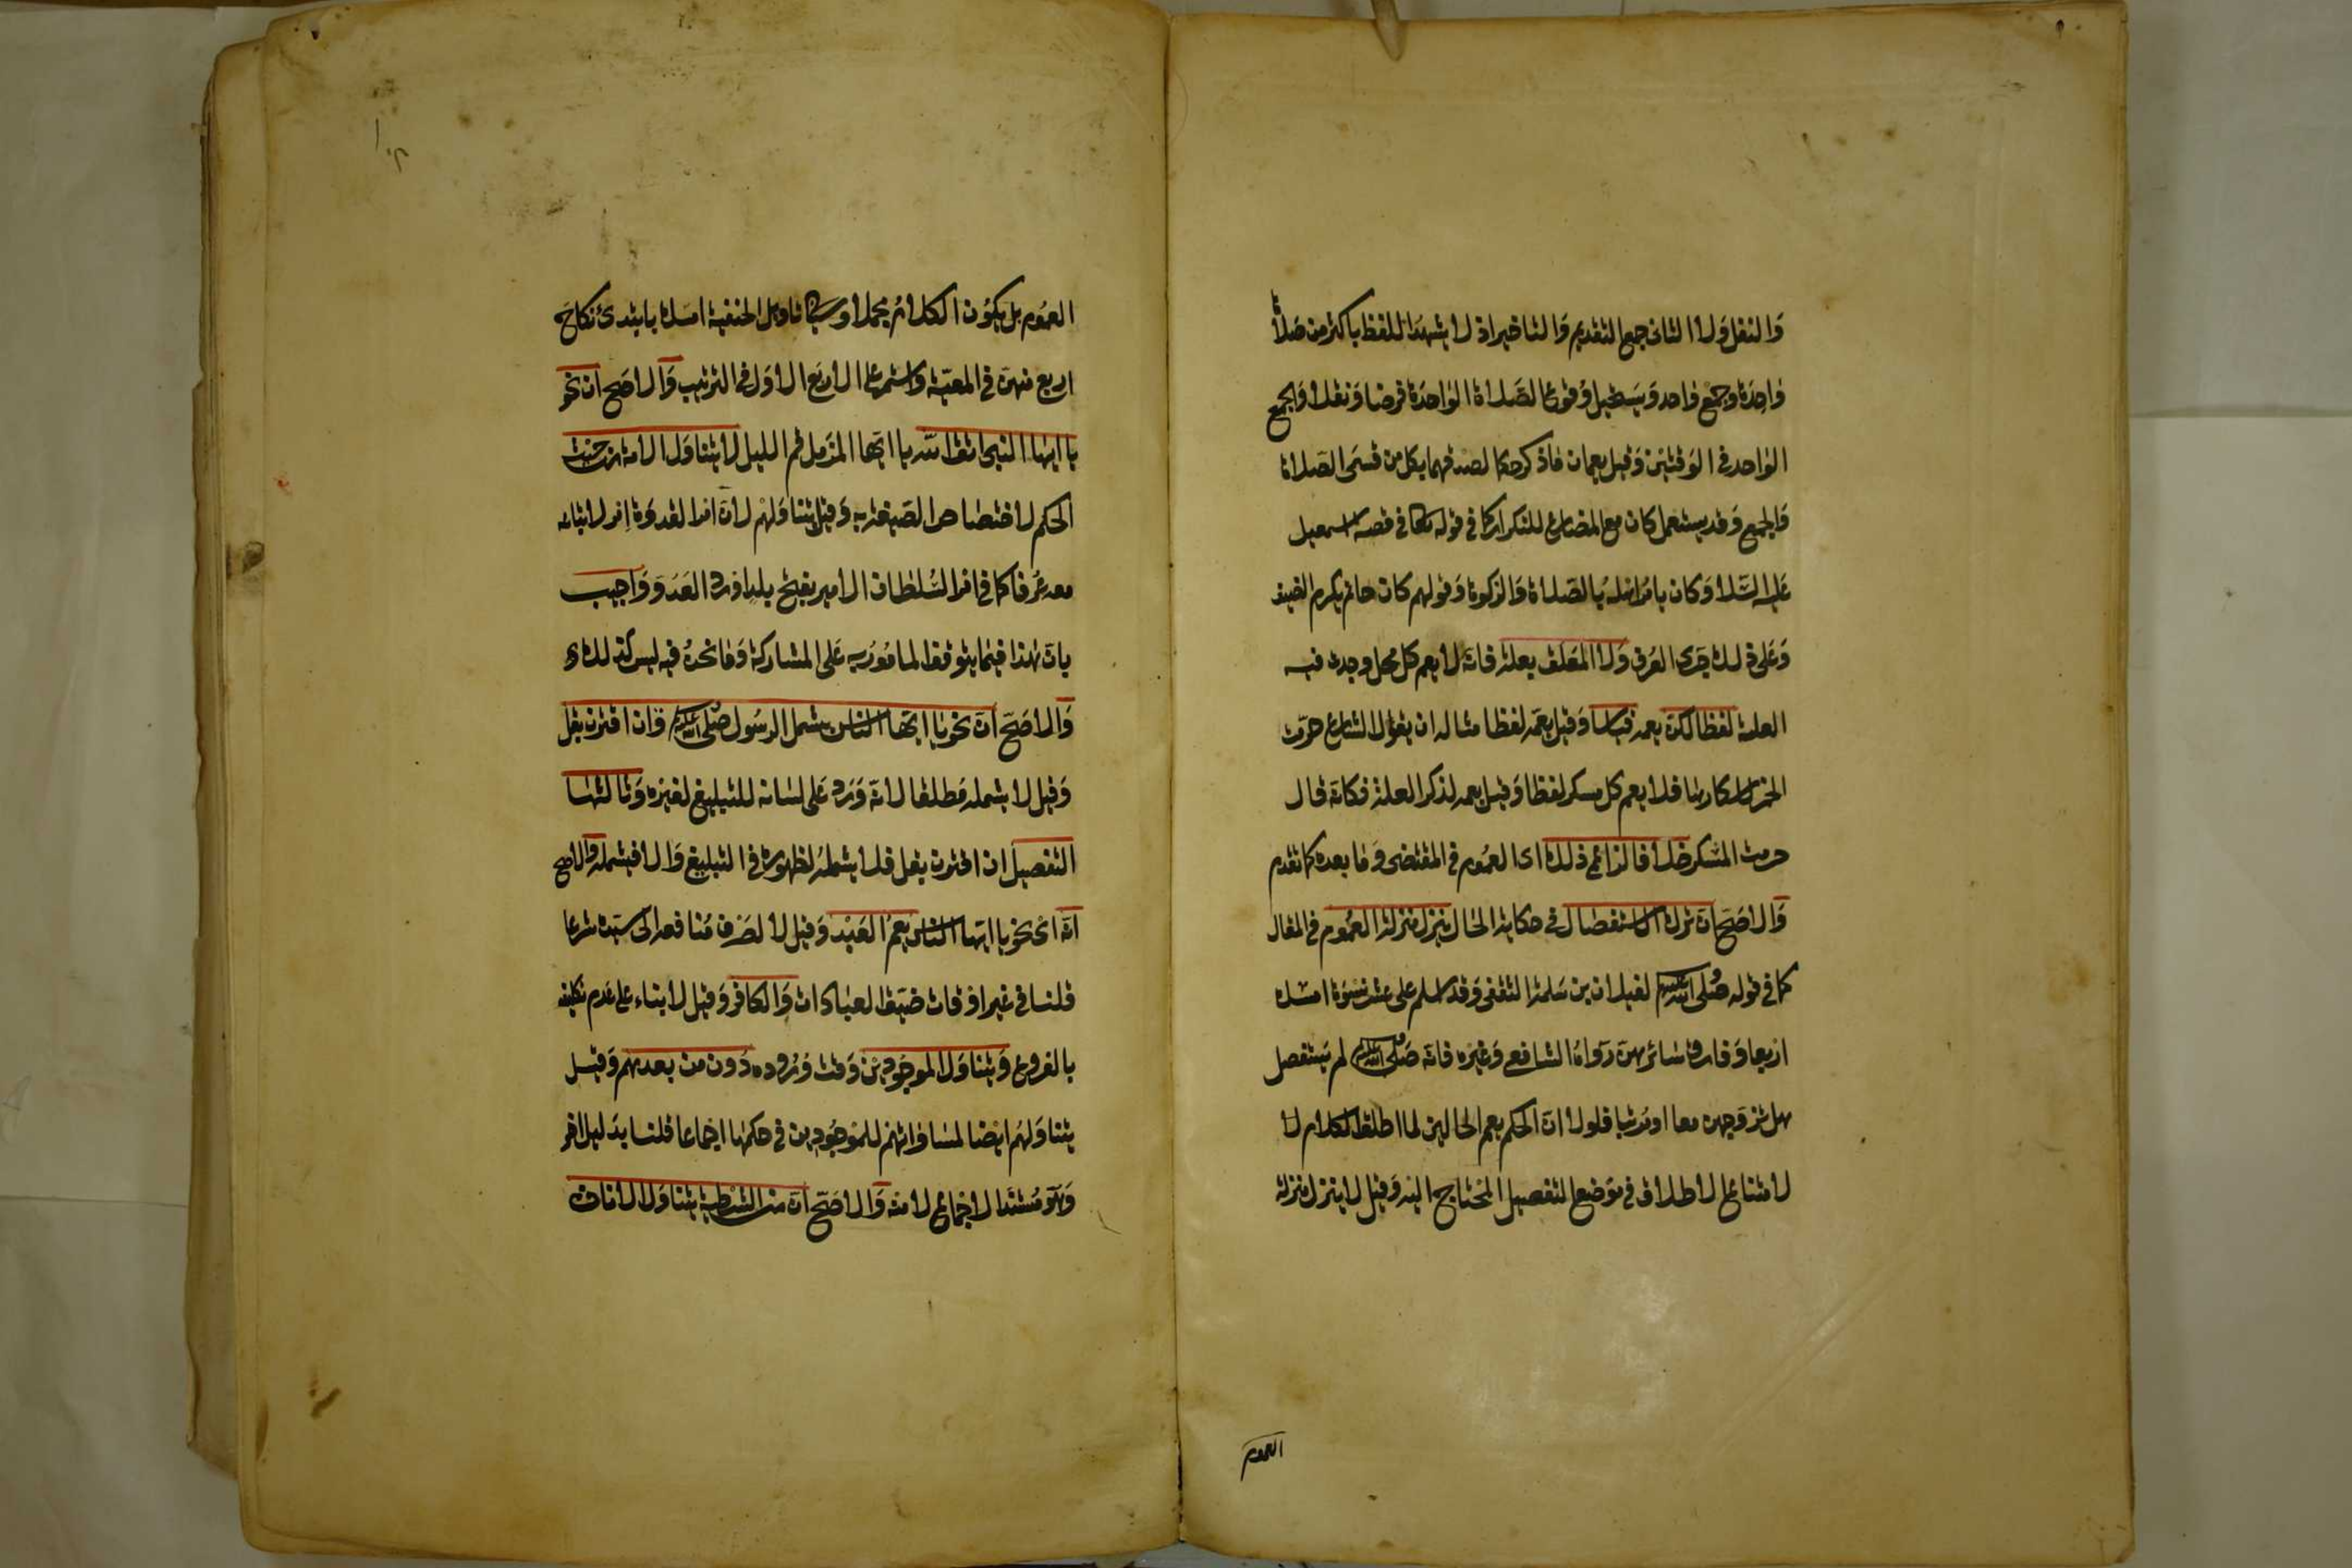 والنفل ولا الثاني جمع التقديم والتاخير اذ لا يشهد اللفظ باكثر من صلاة
واحدة وجمع واحد ويستحيل وقوع الصلاة الواحدة فرضا ونفلا والجمع
الواحد في الوقتين وقيل يعمان ما ذكر حكما لصدقهما بكل من قسمي الصلاة
والجمع وقد يستعمل كان مع المضارع للتكرار كما في قوله تعالى في قصة اسمعيل
عليه السلام وكان يامر اهله بالصلاة والزكوة وقولهم كان حاتم يكرم الضيف
وعلى ذلك جرى العرف ولا المعلق بعلة فانه لا يعم كل محل وجدت فيه
العلة لفظا لكن يعمه قياسا وقيل يعمه لفظا مثاله ان يقول الشارع حرمت
الخمر لاسكارها فلا يعم كل مسكر لفظا وقيل يعمه لذكر العلة فكانه قال
حرمت المسكر خلافا لزاعمي ذلك اي العموم في المقتضى وما بعده كما تقدم
والاصح ان ترك الاستفصال في حكاية الحال ينزل منزلة العموم في المقال
كما في قوله صلى الله عليه وسلم لغيلان بن سلمة الثقفي وقد اسلم على عشر نسوة امسك
اربعا وفارق سائرهن رواه الشافعي وغيره فانه صلى الله عليه وسلم لم يستفصل
هل تزوجهن معا او مرتبا فلولا ان الحكم يعم الحالين لما اطلق الكلام لا
لامتناع الاطلاق في موضع التفصيل المحتاج اليه وقيل لا ينزل منزلة
العموم
العموم بل يكون الكلام مجملا وسياتي تاويل الحنفية امسك بابتدئ نكاح
اربع منهن في المعية واستمر على الاربع الاول في الترتيب والاصح ان نحو
يا ايها النبي اتق الله يا ايها المزمل قم الليل لا يتناول الامة من حيث
الحكم لاختصاص الصيغة به وقيل يتناولهم لان امر القدوة امر لاتباعه
معه عرفا كما في امر السلطان الامير بفتح بلد او رد العدو واجيب
بان هذا فيما يتوقف المامور به على المشاركة وما نحن فيه ليس كذلك
والاصح ان نحو يا ايها الناس يشمل الرسول صلى الله عليه وسلم وان اقترن بقل
وقيل لا يشمله مطلقا لانه ورد على لسانه للتبليغ لغيره وثالثها
التفصيل ان اقترن بقل فلا يشمله لظهوره في التبليغ والا فيشمله والاصح
انه اي نحو يا ايها الناس يعم العبد وقيل لا لصرف منافعه الى سيده شرعا
قلنا في غير اوقات ضيق العبادات والكافر وقيل لا بناء على عدم تكليفه
بالفروع ويتناول الموجودين وقت وروده دون من بعدهم وقيل
يتناولهم ايضا لمساواتهم للموجودين في حكمها اجماعا قلنا بدليل اخر
وهو مستند الاجماع لا منه والاصح ان من الشرطية يتناول الاناث